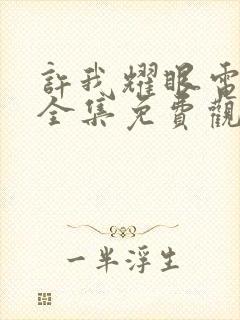 許我耀眼電
全集免費觀
一半浮生